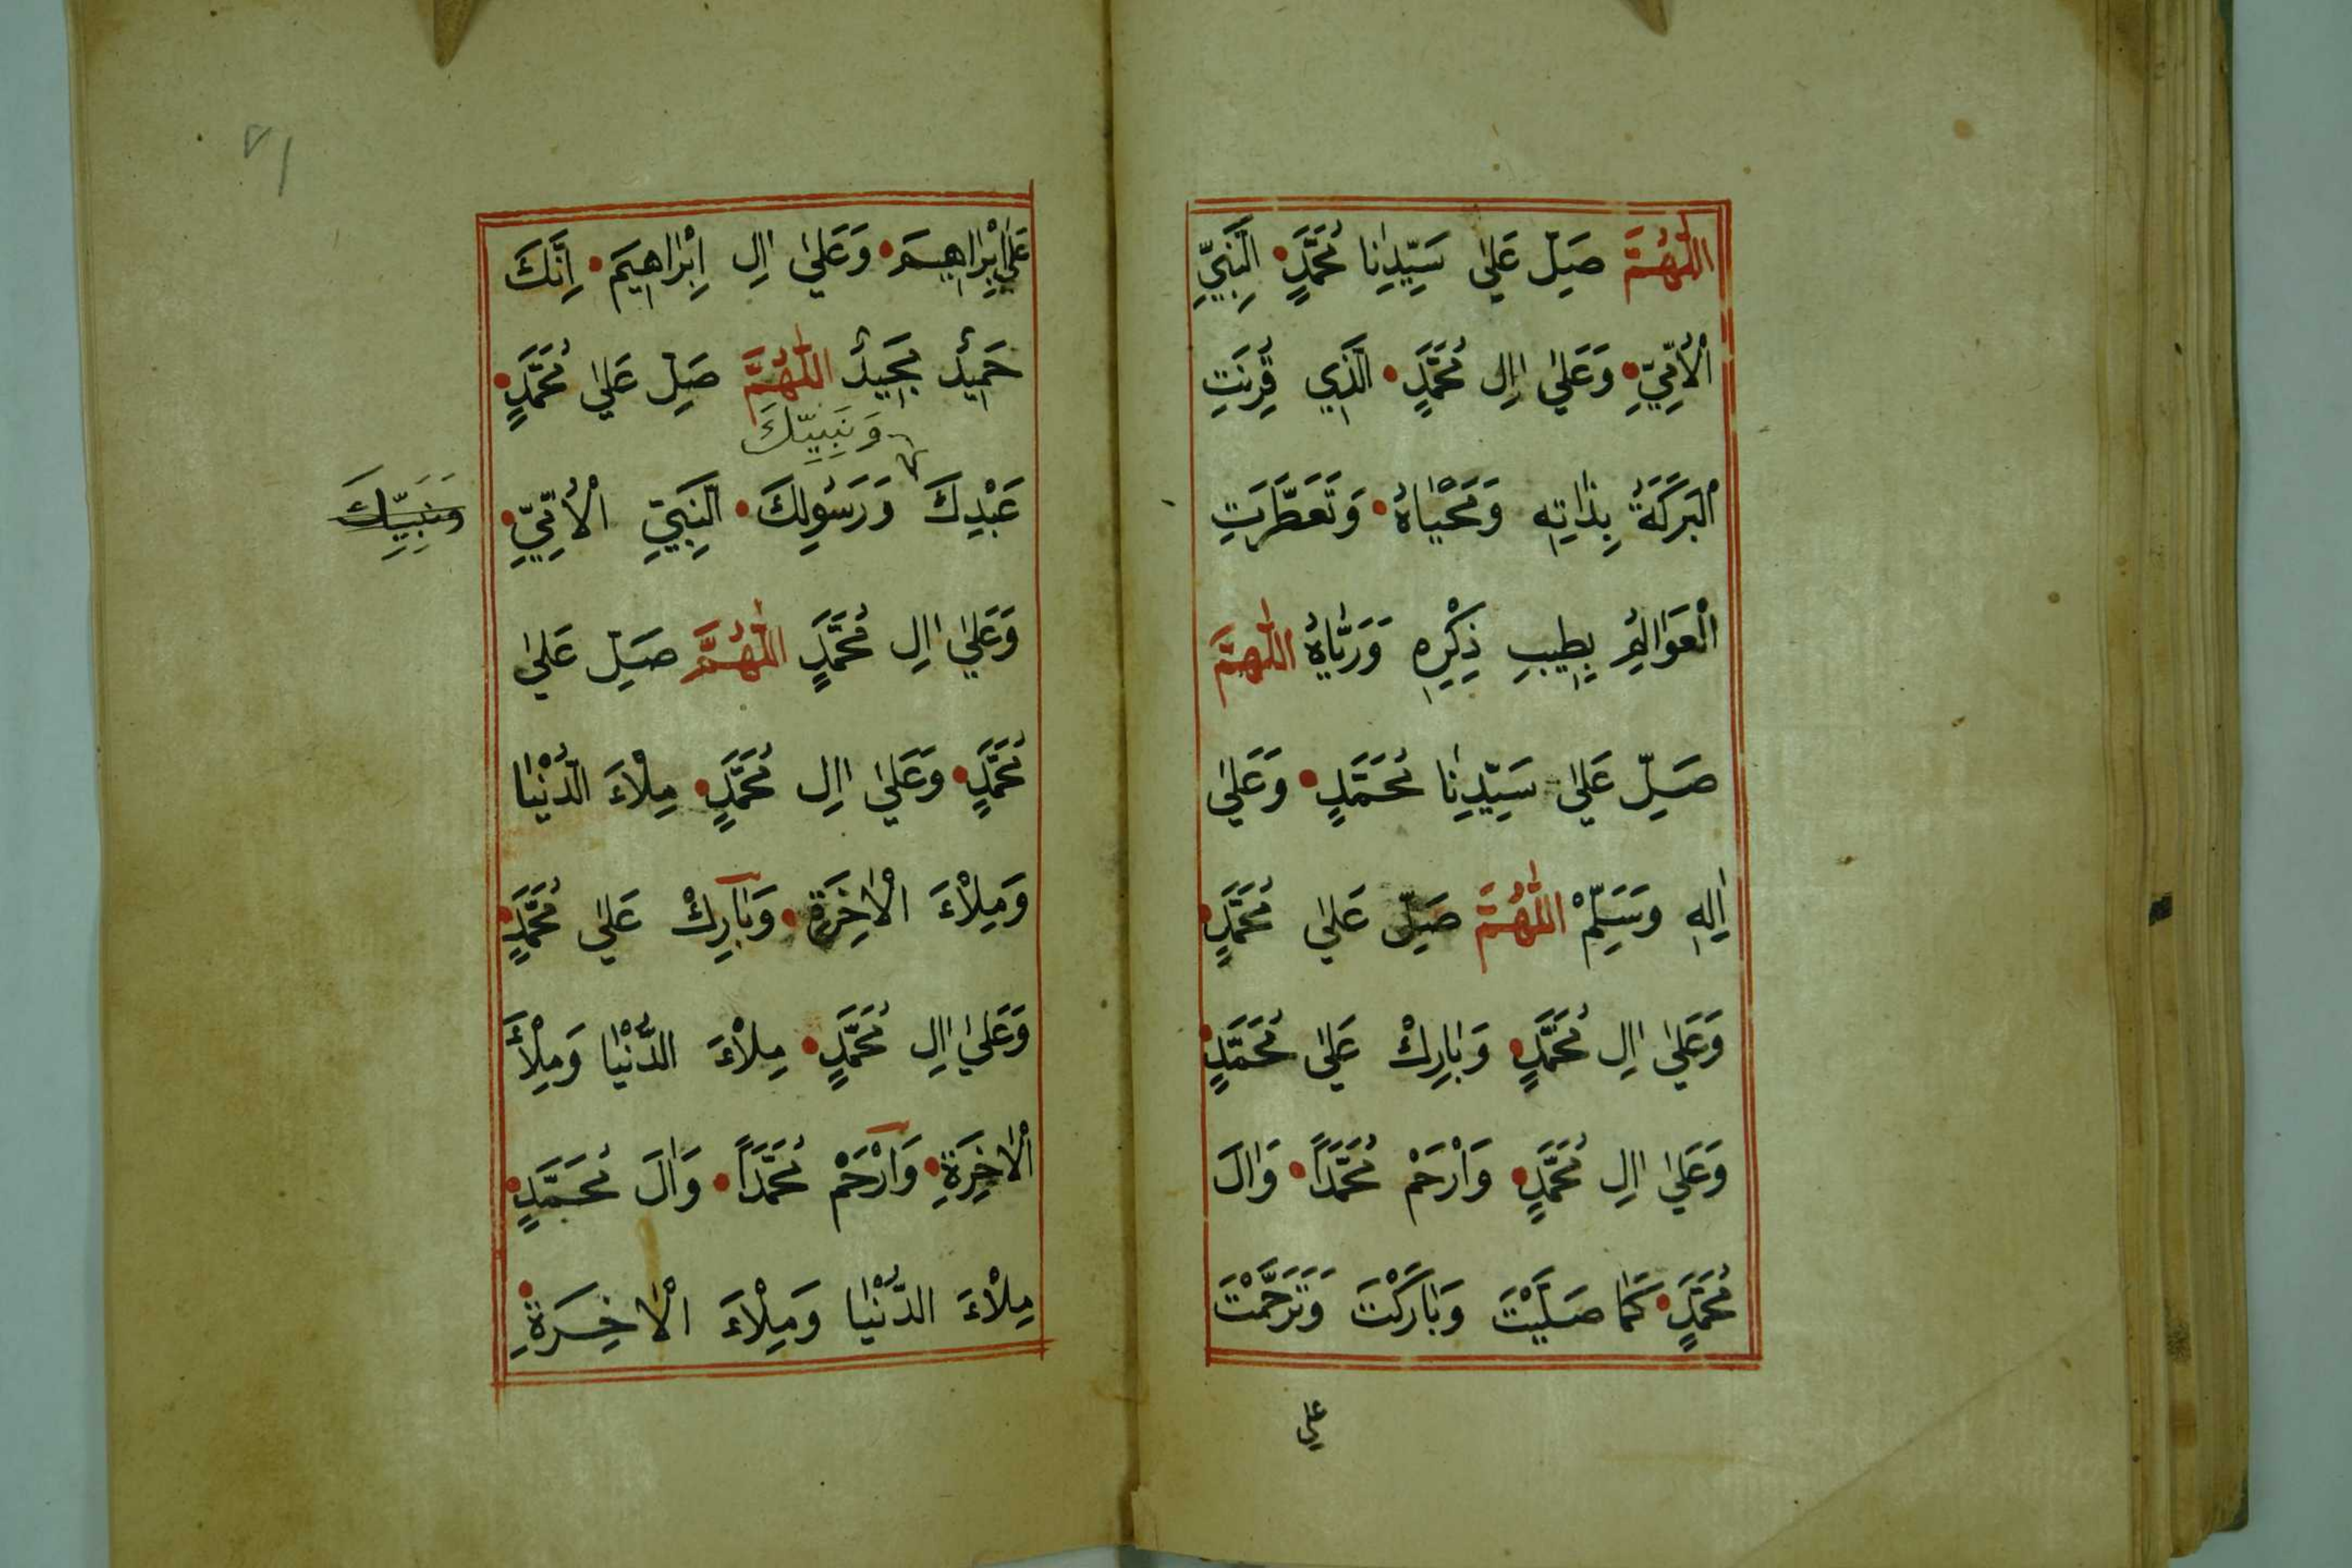 اَللّٰهُمَّ صَلِّ عَلٰى سَيِّدِنَا مُحَمَّدٍ النَّبِيِّ
الْاُمِّيِّ وَعَلٰى اٰلِ مُحَمَّدٍ الَّذِي قُرِنَتِ
الْبَرَكَةُ بِذَاتِهِ وَمَحْيَاهُ وَتَعَطَّرَتِ
الْعَوَالِمُ بِطِيبِ ذِكْرِهِ وَرَيَّاهُ اَللّٰهُمَّ
صَلِّ عَلٰى سَيِّدِنَا مُحَمَّدٍ وَعَلٰى
اٰلِهِ وَسَلِّمْ اَللّٰهُمَّ صَلِّ عَلٰى مُحَمَّدٍ
وَعَلٰى اٰلِ مُحَمَّدٍ وَبَارِكْ عَلٰى مُحَمَّدٍ
وَعَلٰى اٰلِ مُحَمَّدٍ وَارْحَمْ مُحَمَّدًا وَاٰلَ
مُحَمَّدٍ كَمَا صَلَّيْتَ وَبَارَكْتَ وَتَرَحَّمْتَ
على
٢١
عَلٰى اِبْرَاهِيمَ وَعَلٰى اٰلِ اِبْرَاهِيمَ اِنَّكَ
حَمِيدٌ مَجِيدٌ اَللّٰهُمَّ صَلِّ عَلٰى مُحَمَّدٍ
وَنَبِيِّكَ
عَبْدِكَ وَرَسُولِكَ النَّبِيِّ الْاُمِّيِّ
وَنَبِيِّكَ
وَعَلٰى اٰلِ مُحَمَّدٍ اَللّٰهُمَّ صَلِّ عَلٰى
مُحَمَّدٍ وَعَلٰى اٰلِ مُحَمَّدٍ مِلْاَءَ الدُّنْيَا
وَمِلْاَءَ الْاٰخِرَةِ وَبَارِكْ عَلٰى مُحَمَّدٍ
وَعَلٰى اٰلِ مُحَمَّدٍ مِلْاَءَ الدُّنْيَا وَمِلْأَ
الْاٰخِرَةِ وَارْحَمْ مُحَمَّدًا وَاٰلَ مُحَمَّدٍ
مِلْاَءَ الدُّنْيَا وَمِلْاَءَ الْاٰخِرَةِ